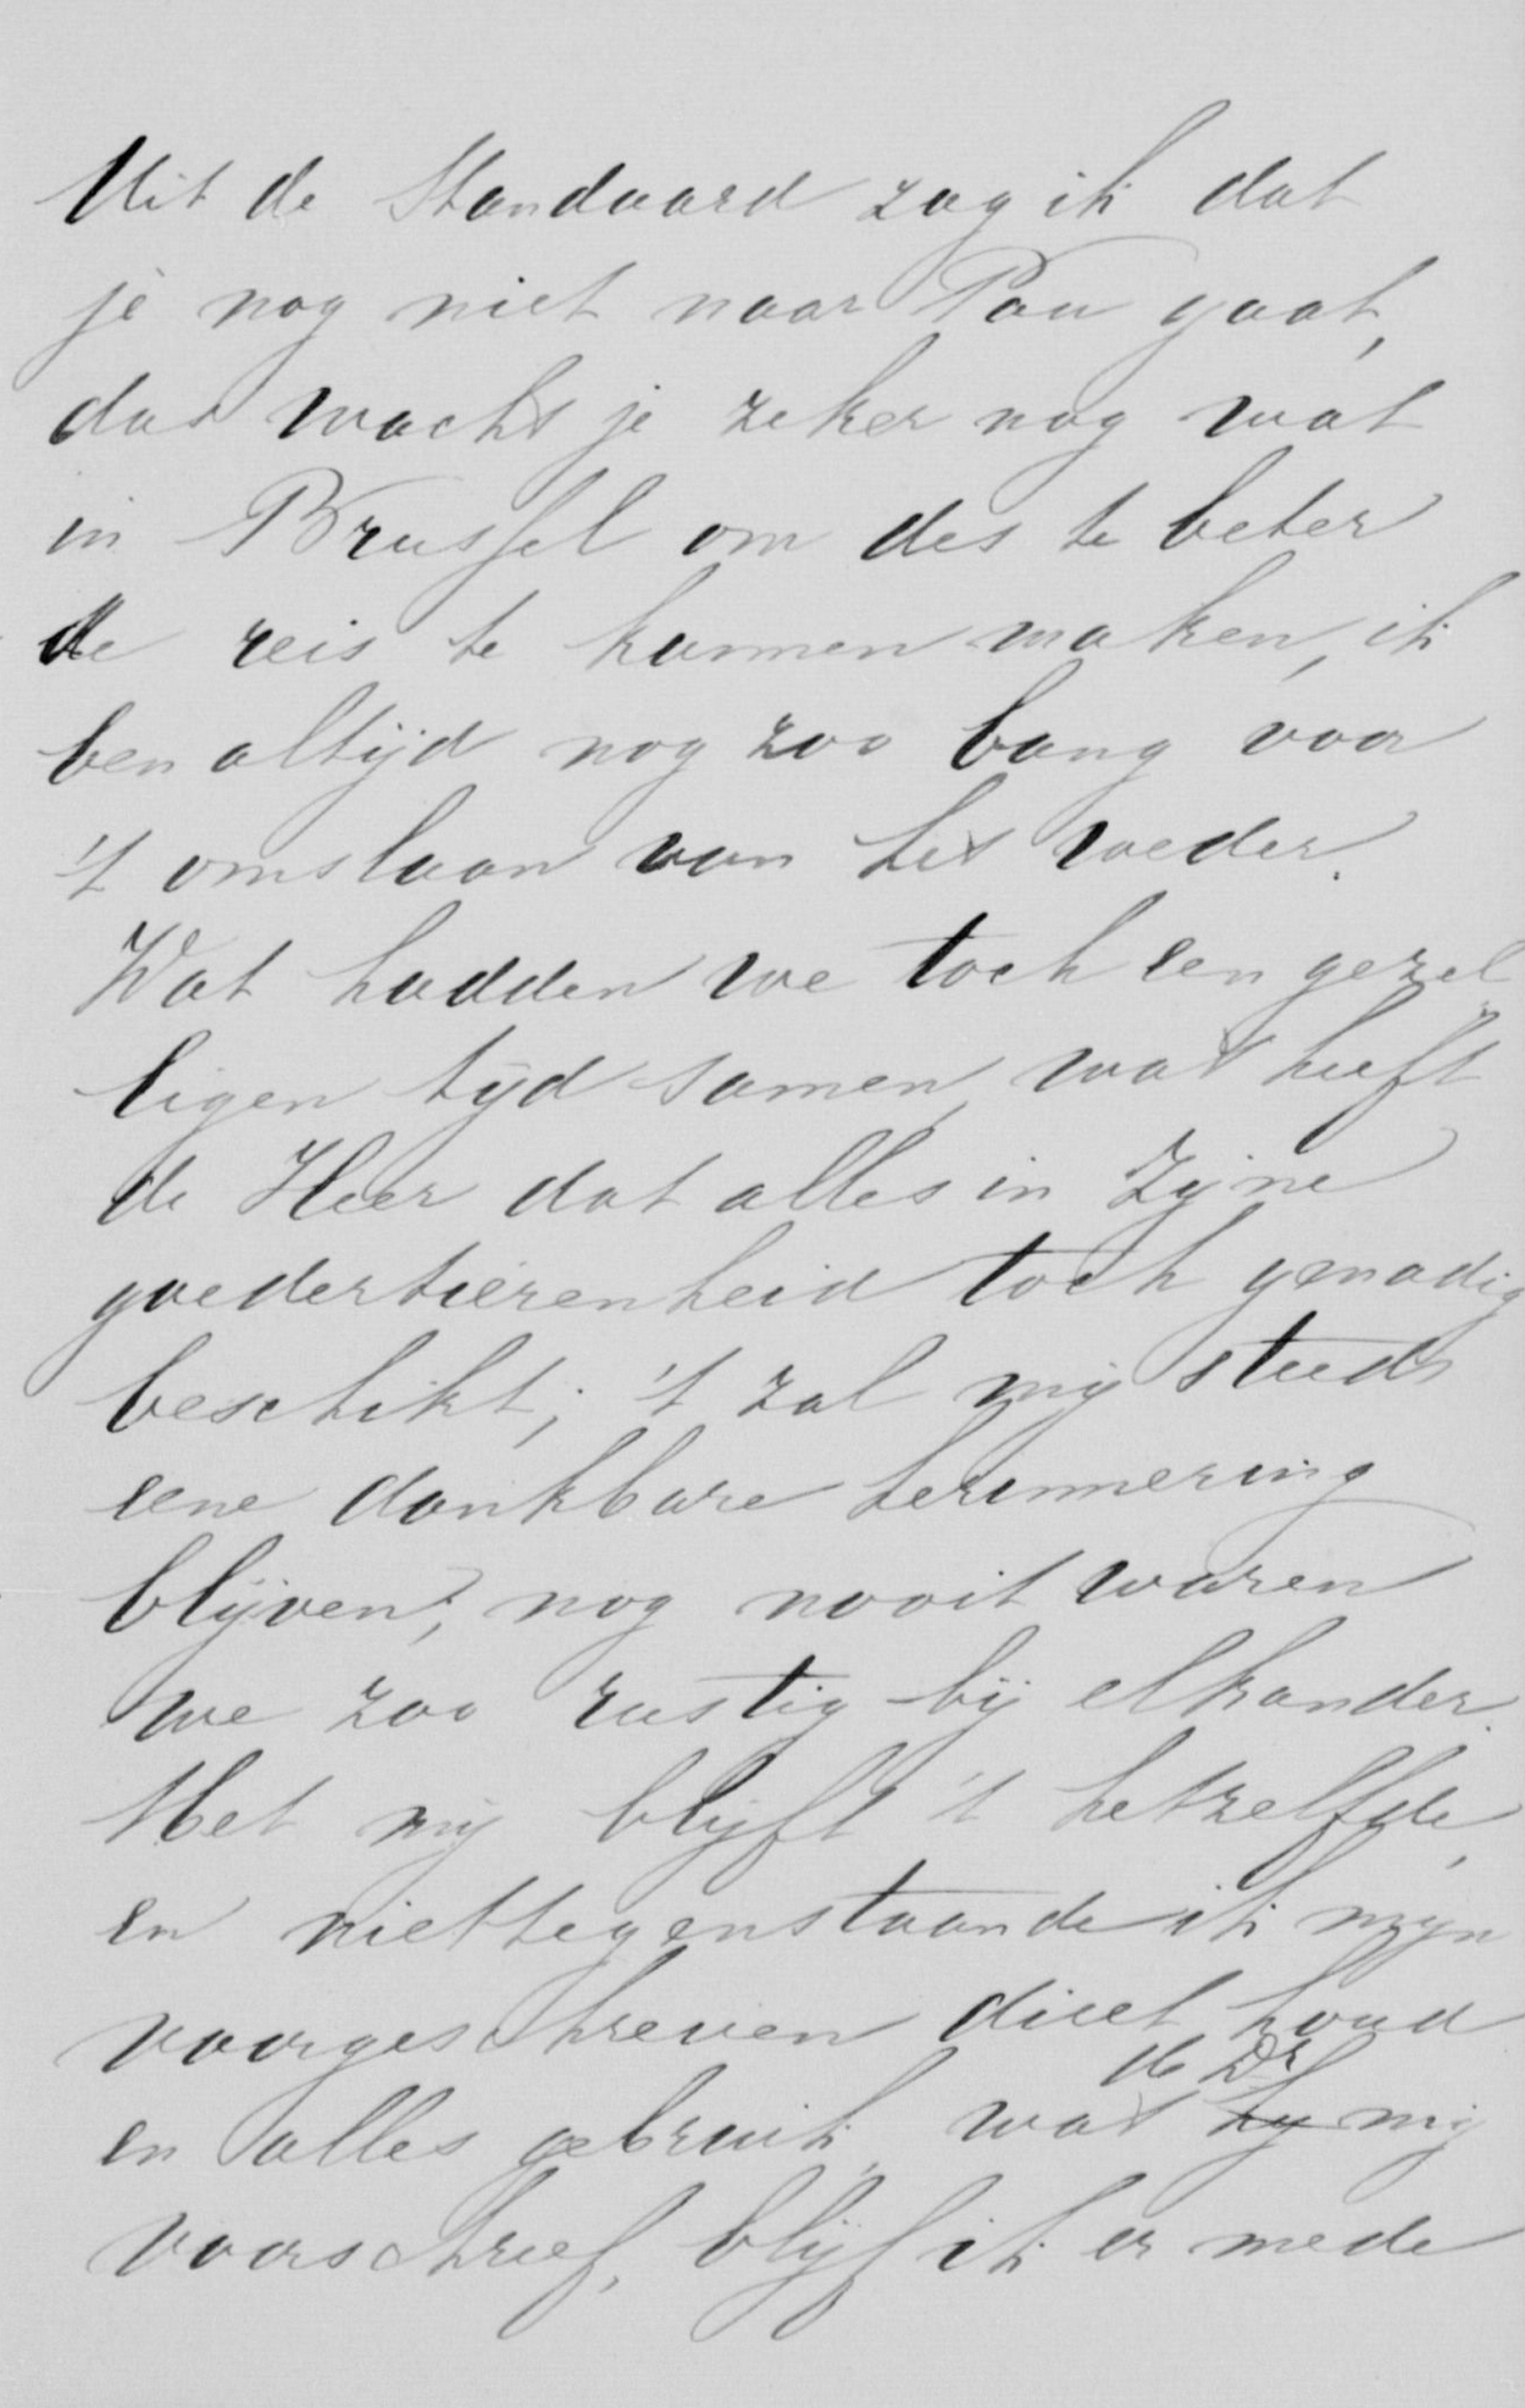 Uit de Standaard zag ik dat
je nog niet naar Pau gaat,
dat wacht je zeker nog wat
in Brussel om des te beter
de reis te kunnen maken, ik
ben altijd nog zoo bang voor
't omslaan van het weder.
Wat hadden we toch een gezel
ligen tijd samen, wat heeft
de Heer dat alles in Zijne
goedertierenheid toch genadig
beschikt; 't zal mij steeds
eene dankbare herinnering
blijven; nog nooit waren
we zoo rustig bij elkander.
Met mij blijft 't hetzelfde,
en niettegenstaande ik mijn
voorgeschreven dieet houd
de Dr
en alles gebruik, wat hij mij
voorschreef, blijf ik er mede